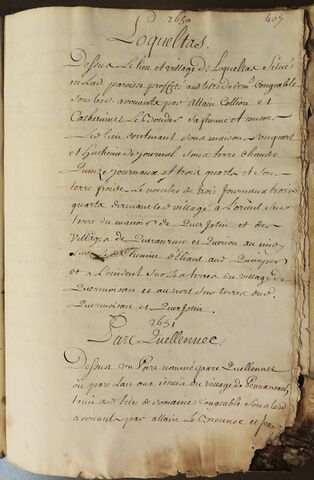 2650
407
Loqueltas.
Dessus Le lieu et village de Loqueltas Situé
en lad paroisse proffitté au titre de dom. Congeable
sous les avouants par allain Collion et
Catherinne Le sa femme et consors
Led lieu contenant sous maison
et huitieme de Journal sous terre chaude
quinze journaux et trois quarts et sous
terre froide Le nombre de trois Journaux trois
quarts donnant led village a Lorient sur
terre du manoir de Querjstin et des
villages de et au midy
sur Le Chemin d'Elliant aud Quimper
et a loccident sur Les terres du village de
Quermoisan et au nort sur terres dud
Quermoisan et Querjstin.
2651
Parc Quellennec.
Dessus un Parc nommé parc Quellennec
ou parc Lan aux issues du village de Pennaneach
tenu aud titre de domaine congeable sous lesd
avouants par allain Le et Jean